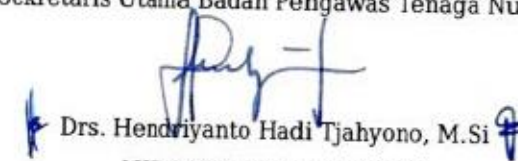 Sekretaris Utama Badan Pengawas Tenaga Nu
Drs. Hendriyanto Hadi Tjahyono, M.Si